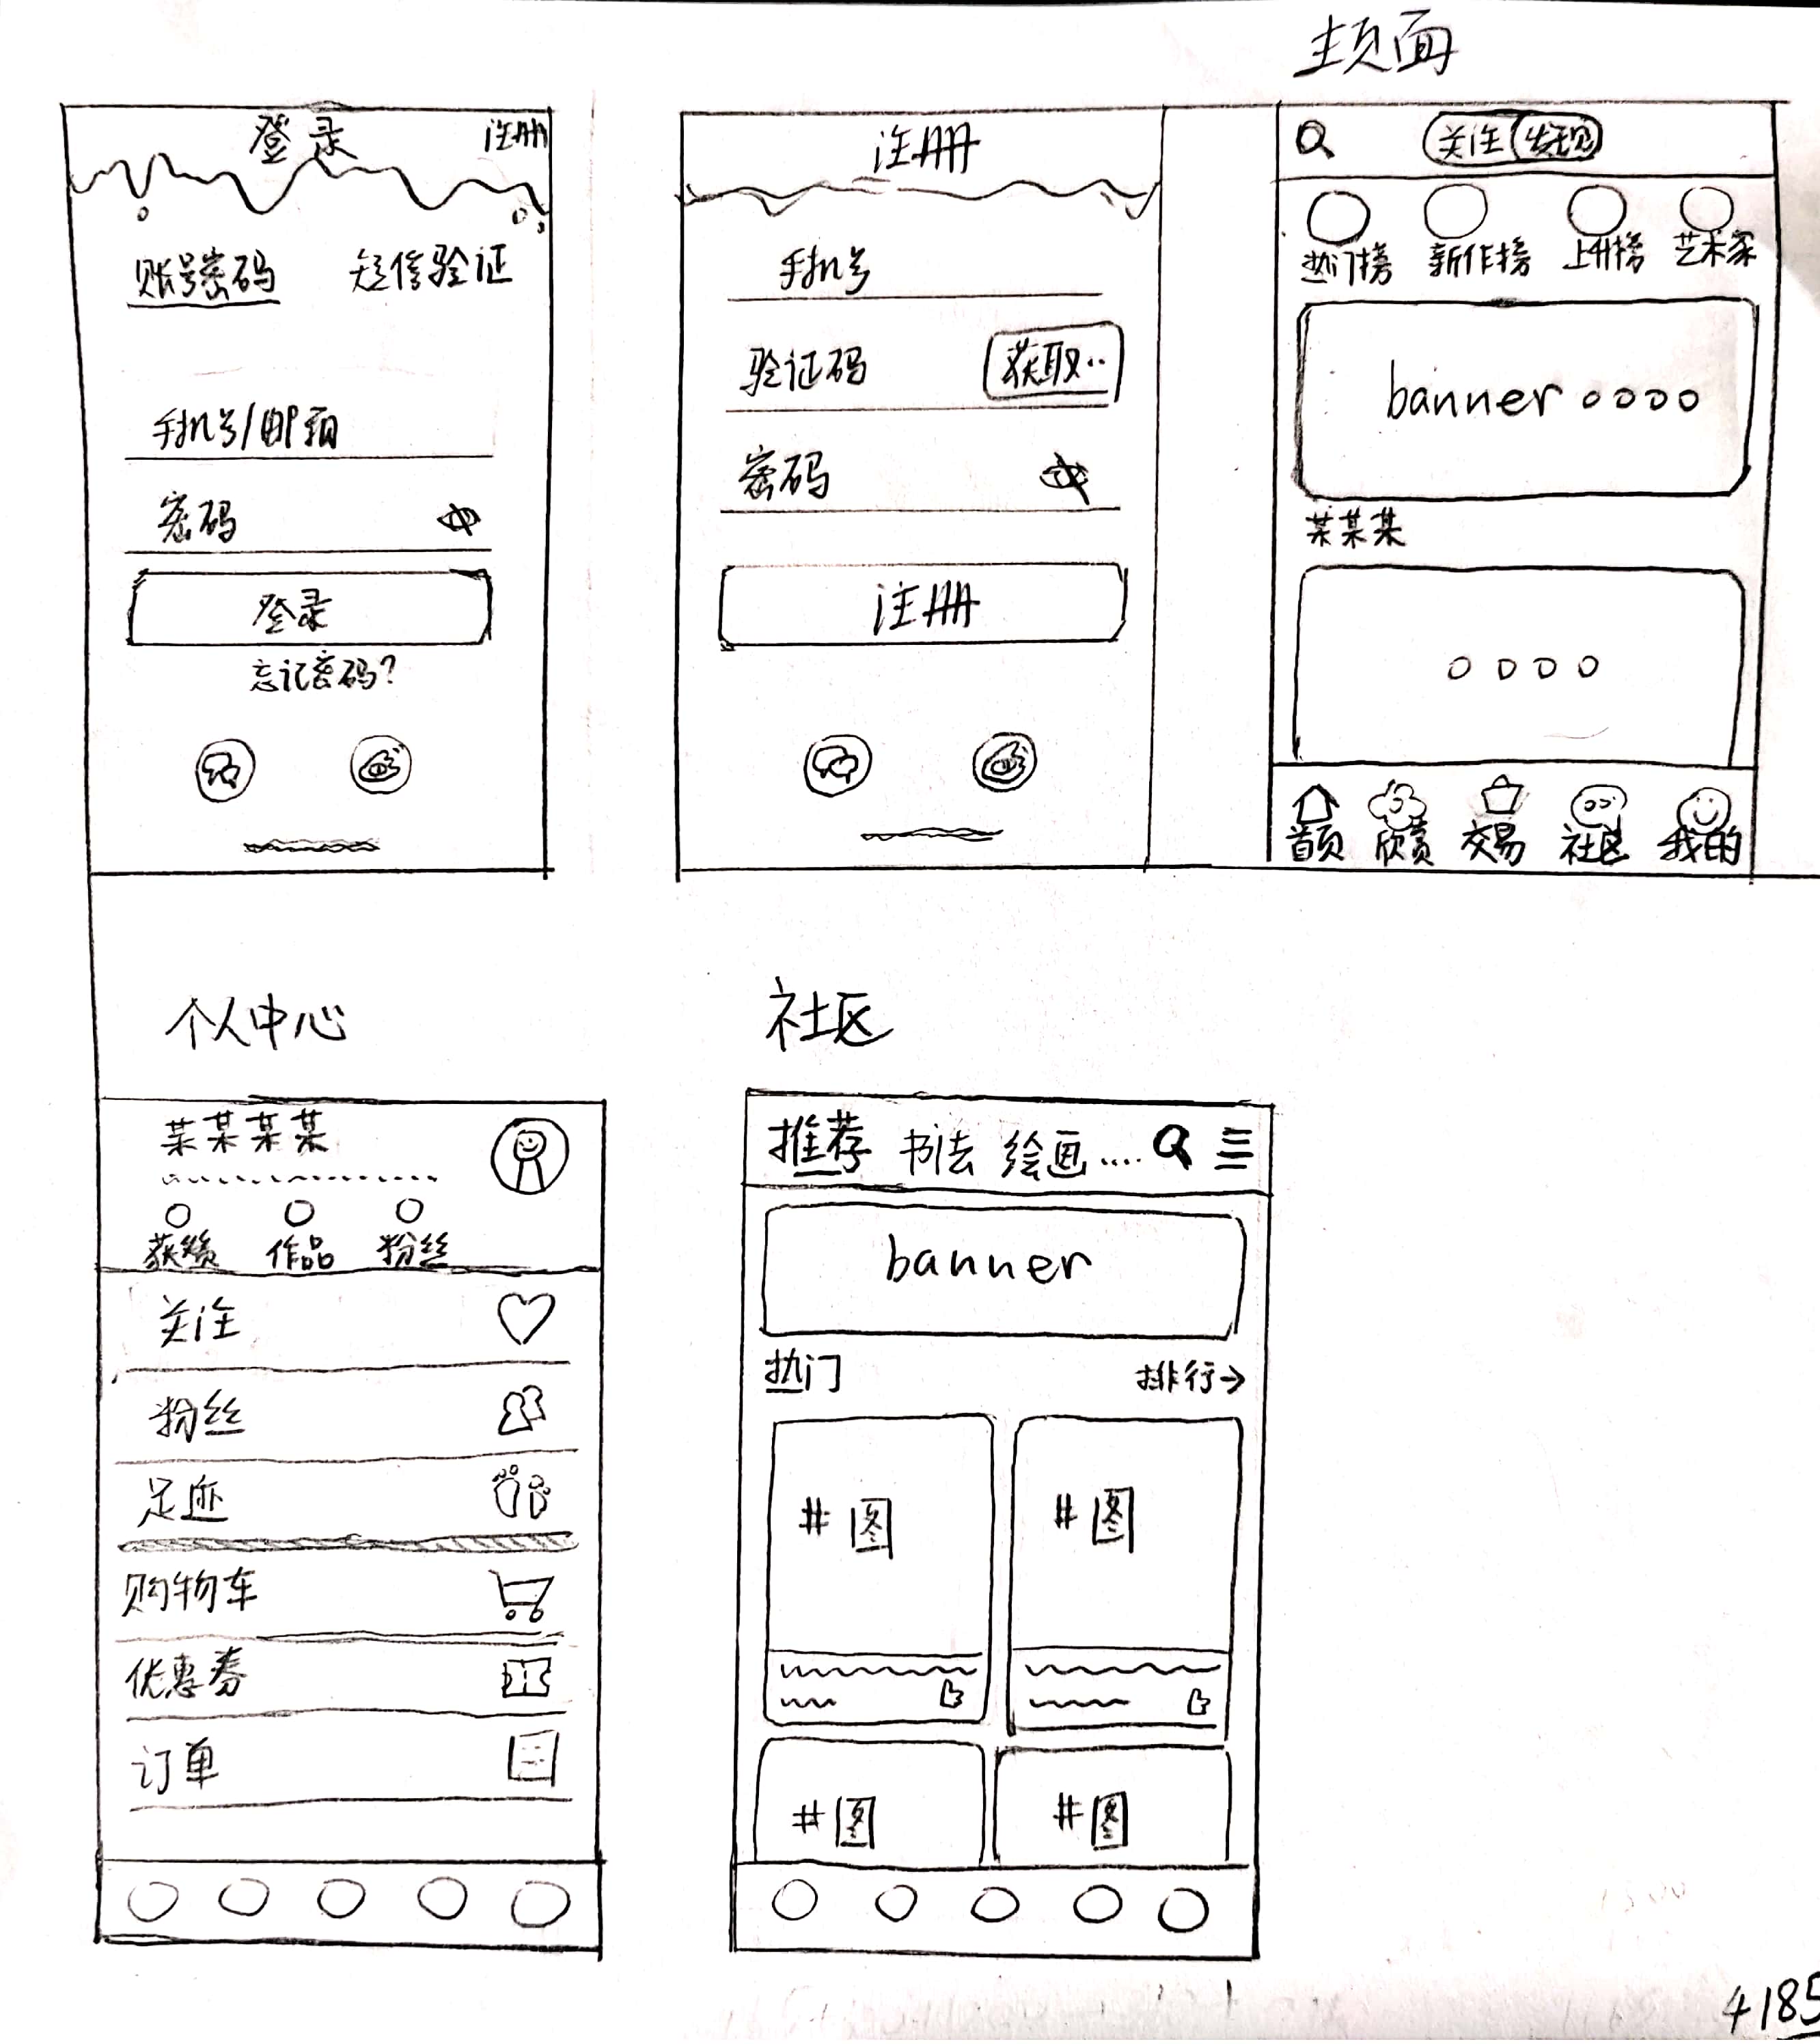 主页面
登录 注册
账号密码 短信验证
手机号/邮箱
密码
登录
忘记密码?
注册
手机号
验证码 获取..
密码
注册
关注 发现
热门榜 新作榜 上升榜 艺术家
banner
某某某
首页 欣赏 交易 社区 我的
个人中心
某某某某
获赞 作品 粉丝
关注
粉丝
足迹
购物车
优惠券
订单
社区
推荐 书法 绘画....
banner
热门 排行→
#图 #图
#图 #图
4185